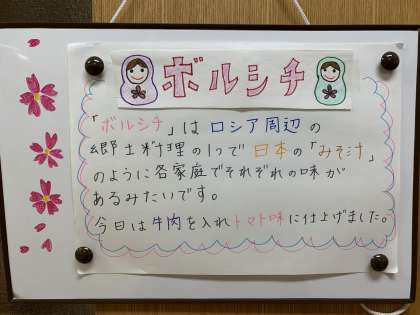 ボルシチ
「ボルシチ」は ロシア周辺の
郷土料理の1つで 日本の「みそ汁」
のように各家庭でそれぞれの味が
あるみたいです。
今日は牛肉を入れトマト味に仕上げました。